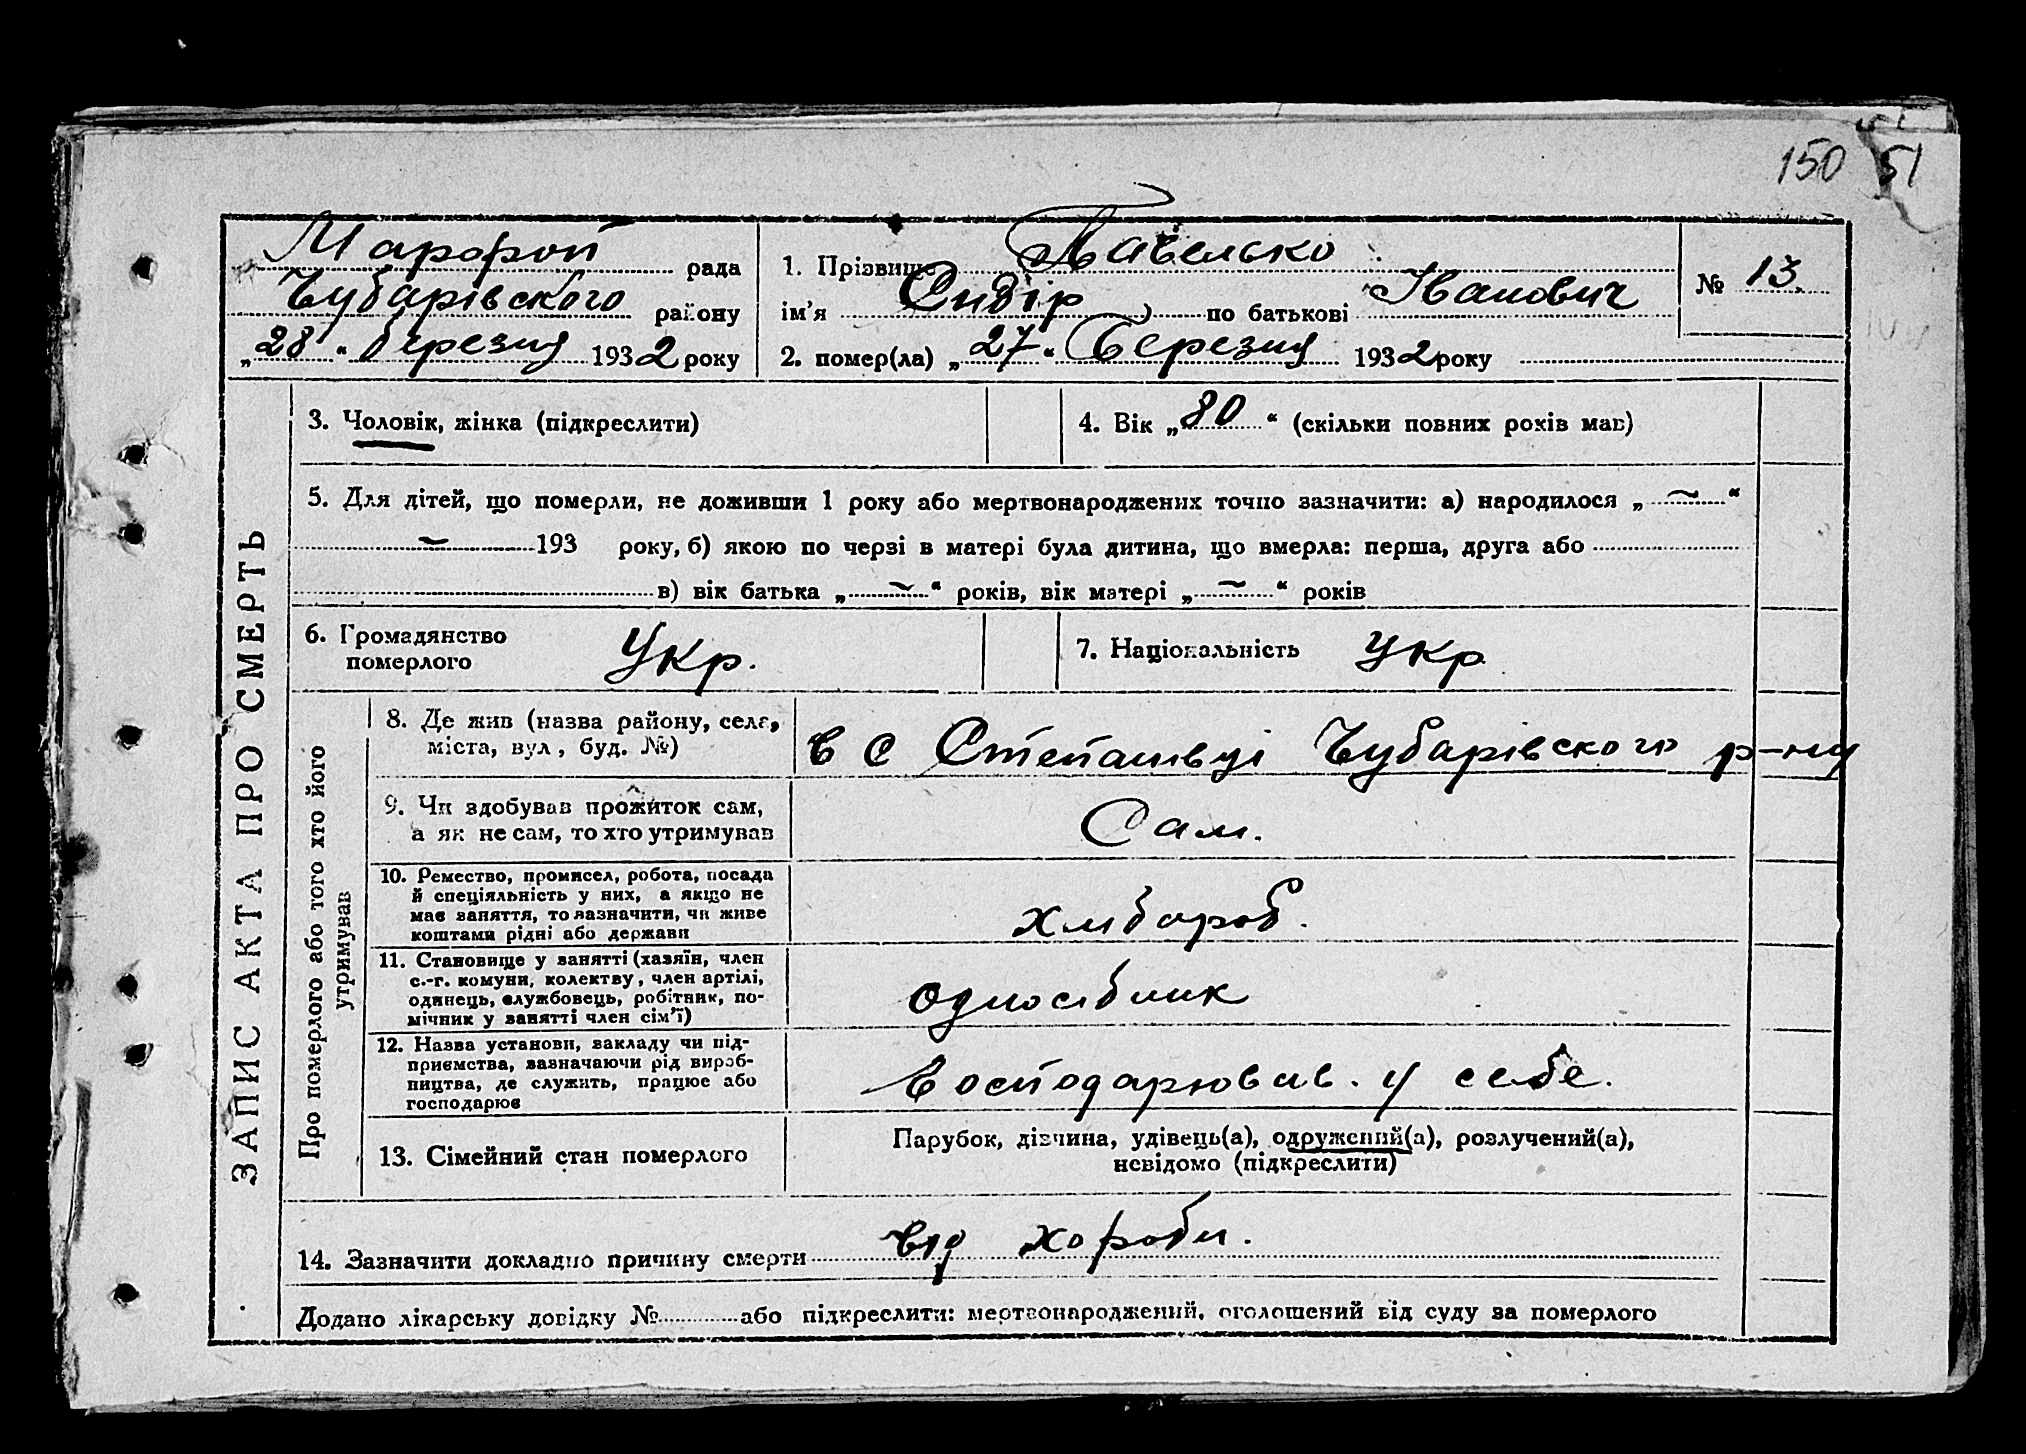 150 51
Марфоп рада
Чубарівського району
„28“ березня 1932 року
1. Прізвище Павелько
ім'я Сидір по батькові Іванович
2. помер(ла) „27“ Березня 1932 року
№ 13.
ЗАПИС АКТА ПРО СМЕРТЬ
3. Чоловік, жінка (підкреслити)
4. Вік „80“ (скільки повних років мав)
5. Для дітей, що померли, не доживши 1 року або мертвонароджених точно зазначити: а) народилося „~“
~ 193 року, б) якою по черзі в матері була дитина, що вмерла: перша, друга або
в) вік батька „~“ років, вік матері „~“ років
6. Громадянство
померлого
Укр.
7. Національність Укр
Про померлого або того хто його
утримував
8. Де жив (назва району, села,
міста, вул, буд. №)
в с Степанівці Чубарівського р-ну
9. Чи здобував прожиток сам,
а як не сам, то хто утримував
Сам.
10. Ремество, промисел, робота, посада
й спеціяльність у них, а якщо не
має заняття, то зазначити, чи живе
коштами рідні або держави
хлібароб.
11. Становище у занятті (хазяїн, член
с.-г. комуни, колектву, член артілі,
одинець, службовець, робітник, по-
мічник у занятті член сім'ї)
односібник
12. Назва установи, закладу чи під-
приємства, зазначаючи рід вироб-
ництва, де служить, працює або
господарює
Господарював. у себе.
13. Сімейний стан померлого
Парубок, дівчина, удівець(а), одружений(а), розлучений(а),
невідомо (підкреслити)
14. Зазначити докладно причину смерти від хороби.
Додано лікарську довідку № або підкреслити: мертвонароджений, оголошений від суду за померлого